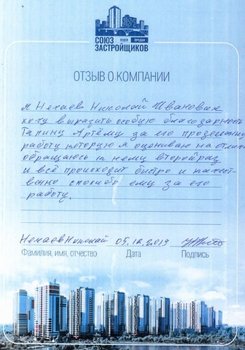 СОЮЗ
ЗАСТРОЙЩИКОВ
ОТЗЫВ О КОМПАНИИ
я Нехаев Николай Иванович
хочу выразить особую благодарность
Артёму за его проделанную
работу которую я оцениваю на отлично
обращаюсь к нему второй раз
и всё происходит быстро и
спасибо ему за его
работу.
Нехаев Николай 05.12.2019
Фамилия, имя, отчество Дата Подпись